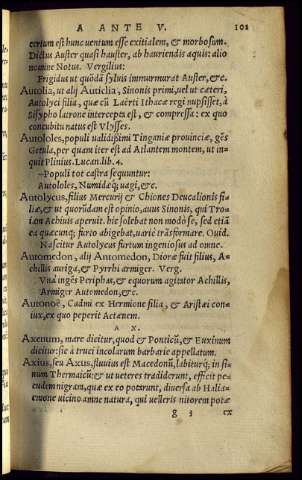 A ANTE V. 101
certum est hunc uentum esse exitialem, & morbosum.
Dictus Auster quasi hauster, ab hauriendis aquis: alio
nomine Notus. Vergilius:
Frigidus ut quõdã syluis immurmurat Auster, &c.
Autolia, ut alij Auticlia, Sinonis primi, uel ut cæteri,
Autolyci filia, quæ cũ Laërti Ithacæ regi nupsisset, à
Sisypho latrone intercepta est, & compressa: ex quo
concubitu natus est Vlysses.
Autololes, populi ualidissimi Tinganiæ prouinciæ, gẽs
Getula, per quam iter est ad Atlantem montem, ut in-
quit Plinius. Lucan. lib. 4.
—Populi tot castra sequuntur:
Autololes, Numidæq; uagi, &c.
Autolycus, filius Mercurij & Chiones Deucalionis fi-
liæ, & ut quorũdam est opinio, auus Sinonis, qui Tro-
iam Achiuis aperuit. hic solebat non modò se, sed etiã
ea quæcunq; furto abigebat, uariè trãsformare. Ouid.
Nascitur Autolycus furtum ingeniosus ad omne.
Automedon, alij Antomedon, Dioræ fuit filius, A-
chillis auriga, & Pyrrhi armiger. Verg.
Vnà ingẽs Periphas, & equorum agitator Achillis,
Armiger Automedon, &c.
Autonoë, Cadmi ex Hermione filia, & Aristæi con-
iux, ex quo peperit Actæonem.
A X.
Axenum, mare dicitur, quod & Ponticũ, & Euxinum
dicitur: sic à truci incolarum barbarie appellatum.
Axius, seu Axus, fluuius est Macedoniæ, labiturq; in si-
num Thermaicũ: & ut ueteres tradiderunt, efficit pe-
cudem nigram, quæ ex eo potarint, diuersa ab Halia-
cmone uicino amne natura, qui uelleris nitorem potæ
g 3 ex